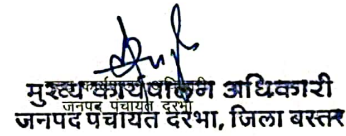 मुख्य कार्यपालन अधिकारी
जनपद पंचायत दरभा
जनपद पंचायत दरभा, जिला बस्तर